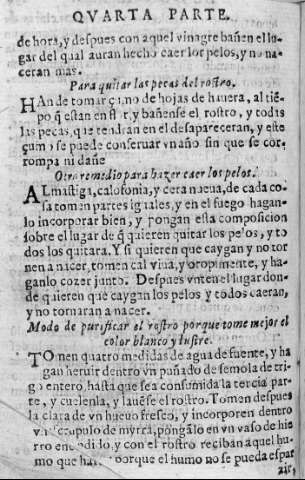 QVARTA PARTE.
de hora, y despues con aquel vinagre bañen el lu-
gar del qual auran hecho caer los pelos, y no na-
ceran mas.
Para quitar las pecas del rostro.
HAn de tomar çumo de hojas de higuera, al tiẽ-
po q̃ estan en flor, y bañense el rostro, y todas
las pecas, que tendran en el desapareceran, y este
çumo se puede conseruar vn año sin que se cor-
rompa ni dañe
Otro remedio para hazer caer los pelos.
ALmastiga, calofonia, y cera nueua, de cada co-
sa tomen partes iguales, y en el fuego hagan-
lo incorporar bien, y pongan esta composicion
sobre el lugar de q̃ quieren quitar los pelos, y to-
dos los quitara. Y si quieren que caygan y no tor-
nen a nacer, tomen cal viua, y oropimente, y ha-
ganlo cozer junto. Despues vnten el lugar don-
de quieren que caygan los pelos y todos caeran,
y no tornaran a nacer.
Modo de purificar el rostro porque tome mejor el
color blanco y lustre.
TOmen quatro medidas de agua de fuente, y ha
gan heruir dentro vn puñado de semola de tri-
go entero, hasta que sea consumida la tercia par-
te, y cuelenla, y lauẽse el rostro. Tomen despues
la clara de vn hueuo fresco, y incorporen dentro
vn escrupulo de myrra, pongãlo en vn vaso de hie
rro encendido, y con el rostro reciban aquel hu-
mo que hara porque el humo no se pueda espar
zir,